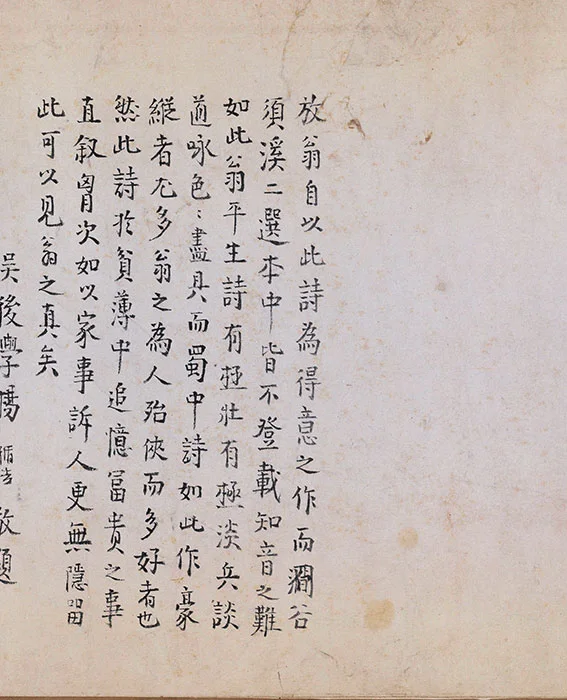 放翁自以此詩為得意之作而澗谷
須溪二選本中皆不登載知音之難
如此翁平生詩有極壯有極淡兵談
酒咏色〻盡具而蜀中詩如此作豪
縱者尤多翁之為人殆俠而多好者也
然此詩於貧薄中追憶富貴之事
直叙胷次如以家事訴人更無隱留
此可以見翁之真矣
吳後學楊循吉敬題